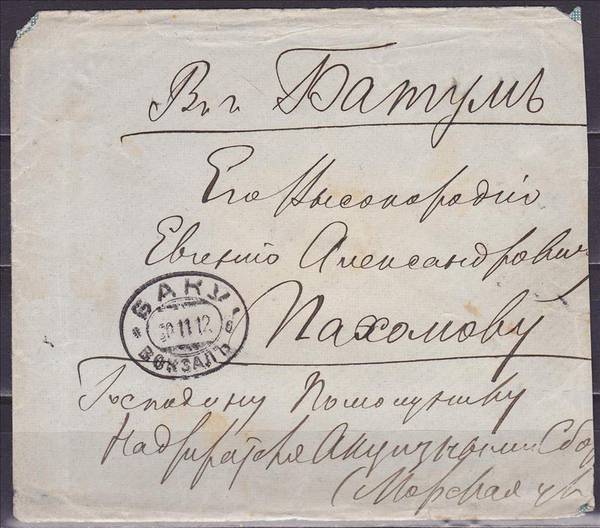 В г. Батумъ
Его Высокородію
Евгенію Александрович
Пахомову
БАКУ
30 11 12
б
ВОКЗАЛЪ
Господину Помощнику
Надзирателя Акцизными Сбор
(Морская ул